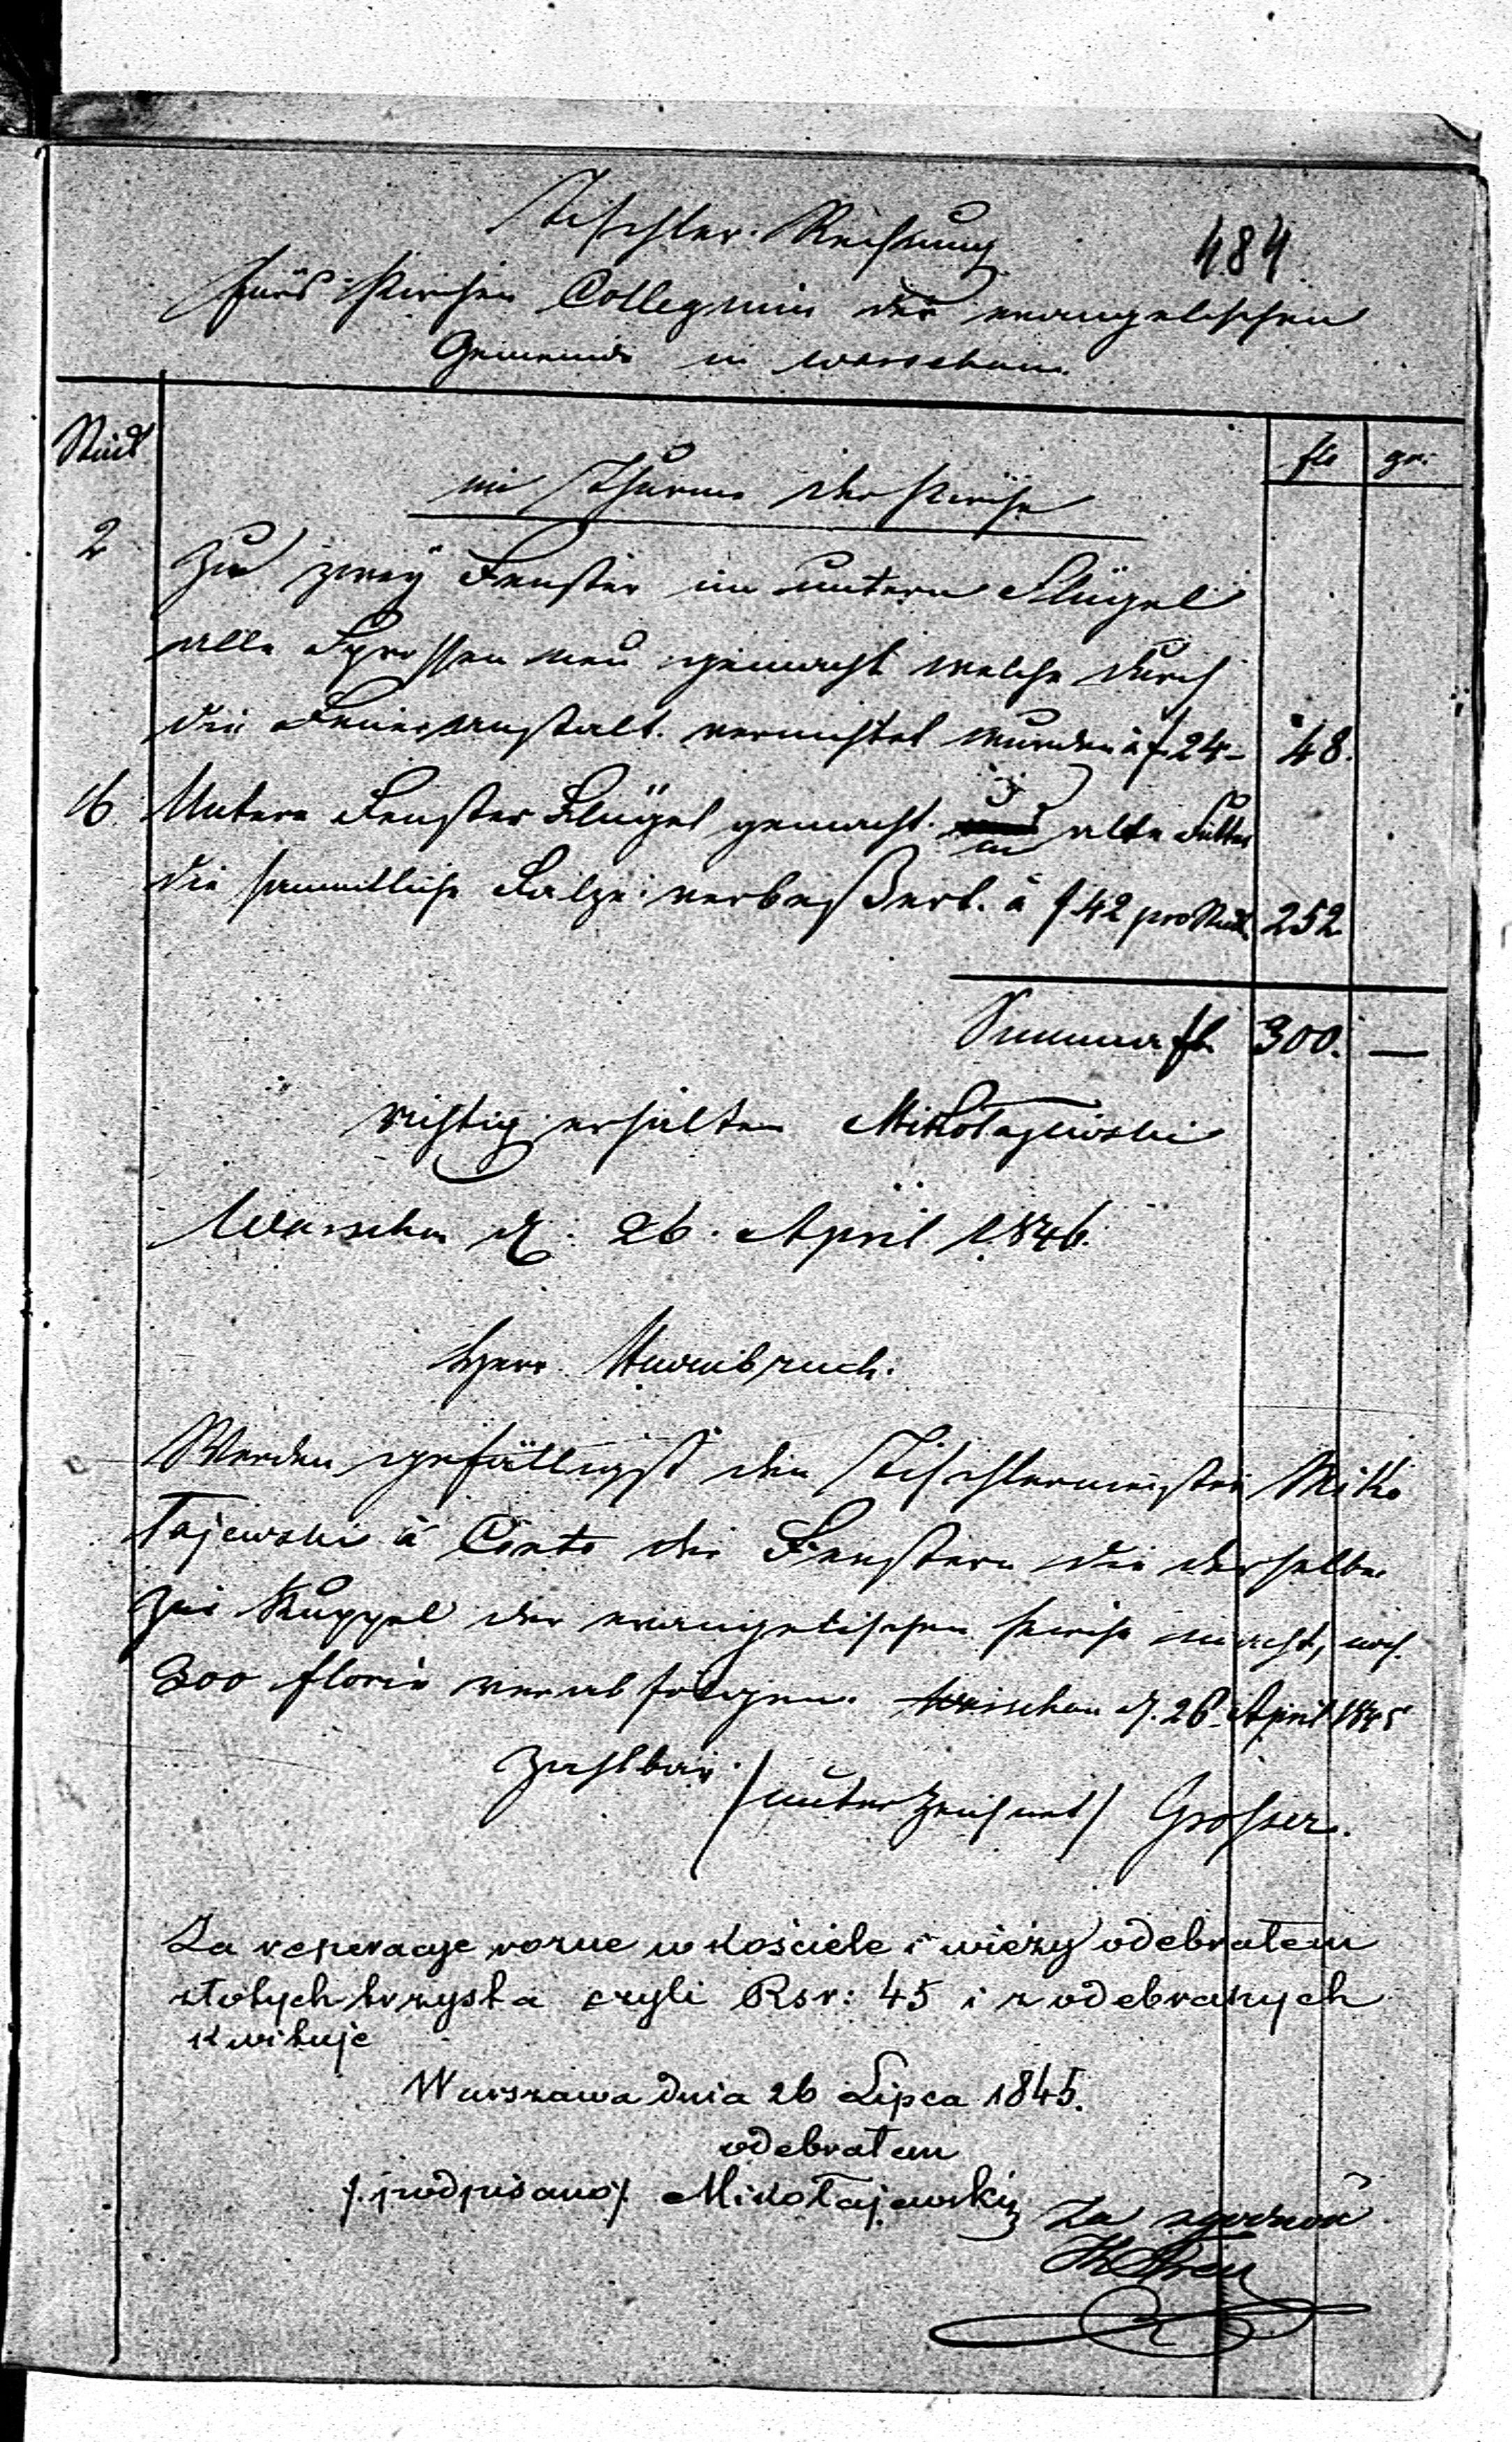 Tischler-Rechnung
484
fürs Kirchen Collegium der evangelischen
Gemeinde in Warschau
Stück
fl gr:
im Thurme der Kirche
2 Zu zwey Fenster im untern Flügel
alle Sprossen neu gemacht welche durch
die Feueranstalt vernichtet wurden à f 24- 48.
6. Untere Fenster Flügel gemacht in alte Futter
die sammtliche Falze verbeßert. à f 42 pro Stück 252
Summa fl. 300. —
richtig erhalten Mikołajewski
Warschau d. 26. April 1846.
Herr
Werden gefälligst den Tischlermeister Miko
łajewski à Conto die Fenstern die derselbe
zur Kuppel der evangelischen Kirche macht, noch
300 florin verabfolgen. Warschau d. 26. April 1845
zahlbar /unterzeichnet/ Grosser.
Za reperacye rozne w kościele i wieży odebrałem
złotych trzysta czyli Rsr: 45 i z odebranych
kwituje
Warszawa dnia 26 Lipca 1845.
odebrałem
/podpisano/. Mikołajewski
Za zgodność